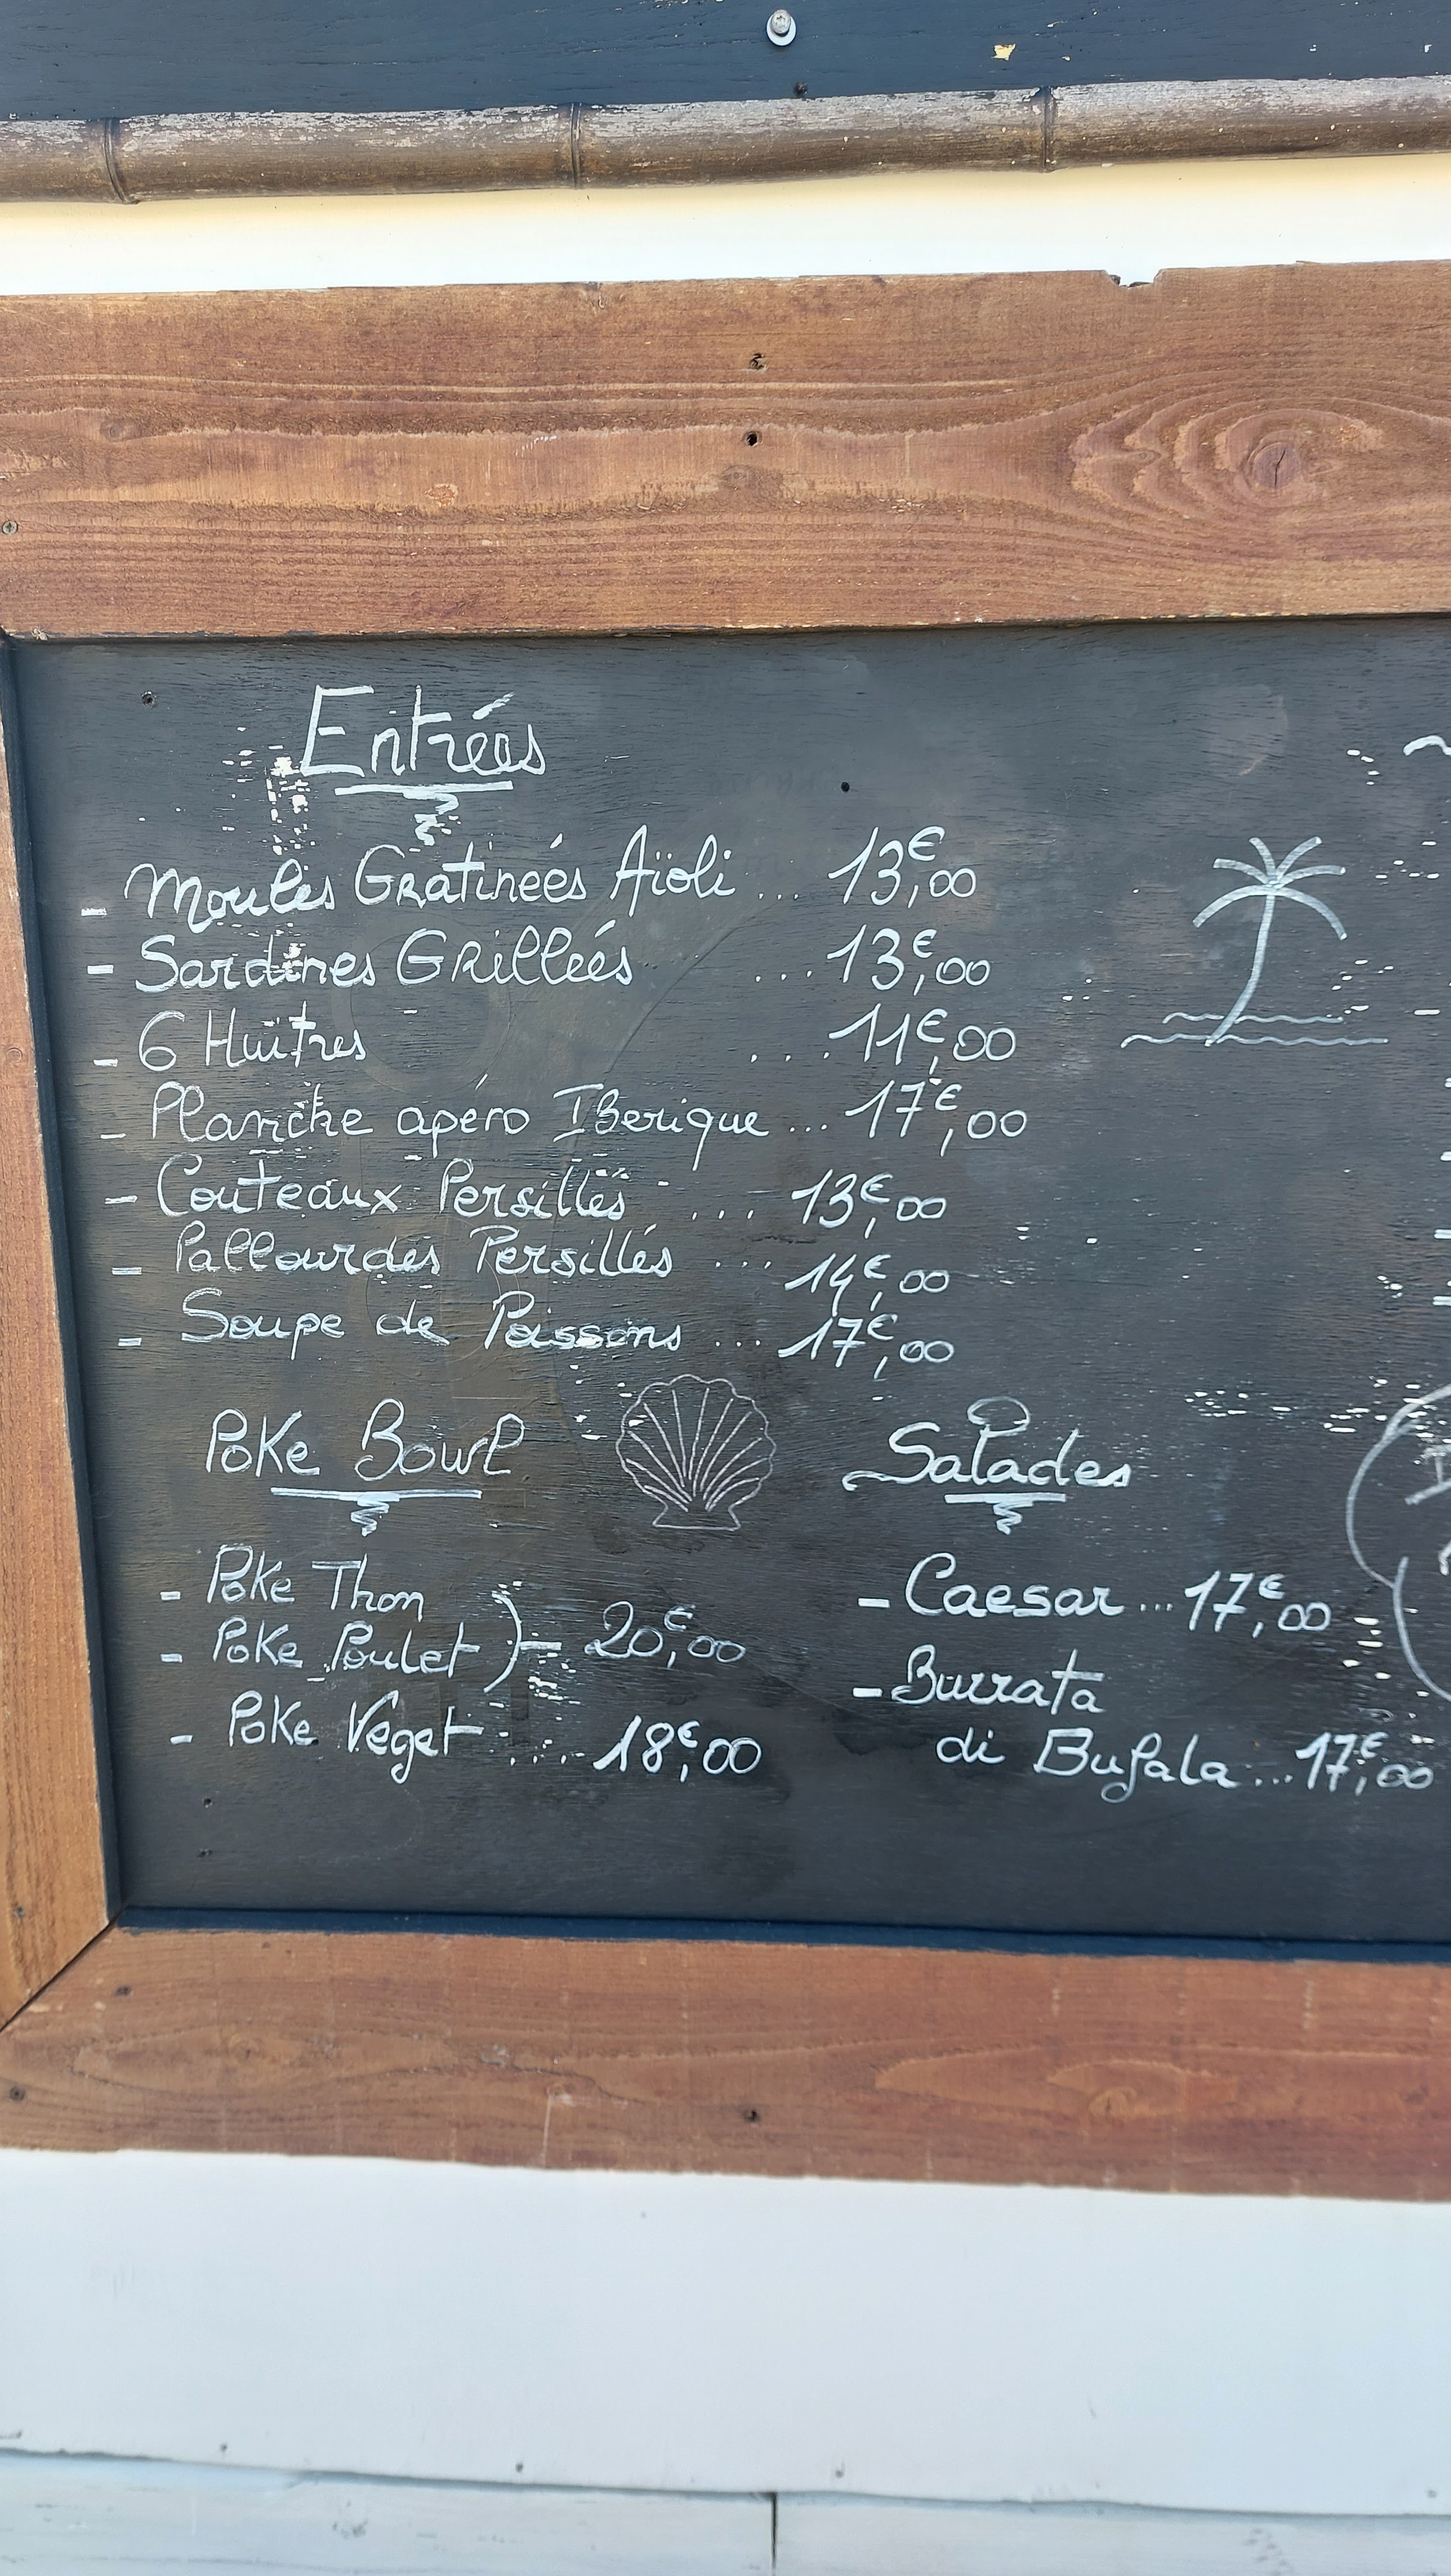 Entrées
- Moules Gratineés Aïoli ... 13€,00
- Sardines Grilleés ... 13€,00
- 6 Huîtres ... 11€,00
- Planche apéro Iberique ... 17€,00
- Couteaux Persillés ... 13€,00
- Pallourdes Persillés ... 14€,00
- Soupe de Poissons ... 17€,00
Poke Bowl
- Poke Thon
- Poke Poulet )- 20€,00
- Poke Veget .... 18€,00
Salades
- Caesar ... 17€,00
- Burrata
di Bufala ... 17€,00